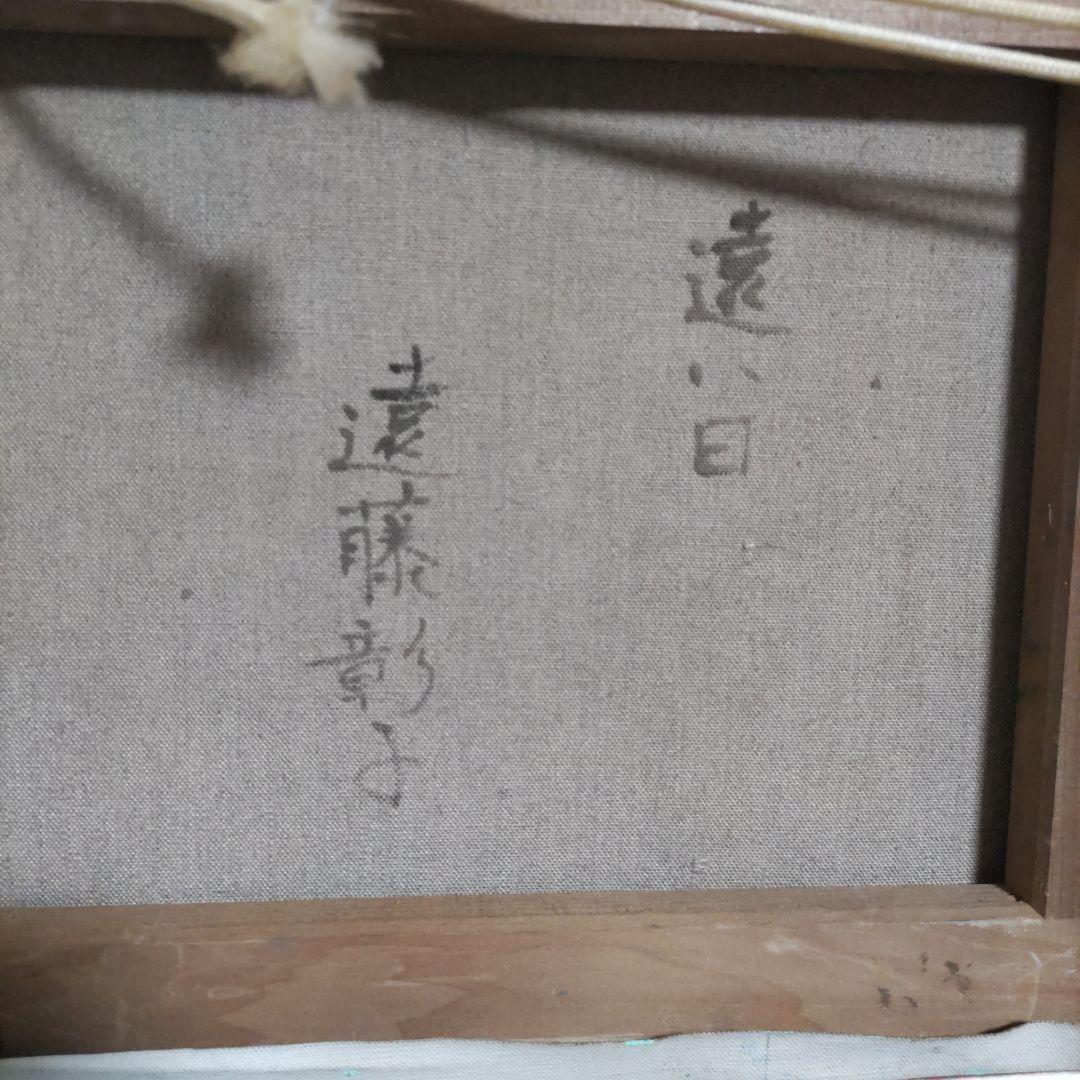 遠い日
遠藤彰子